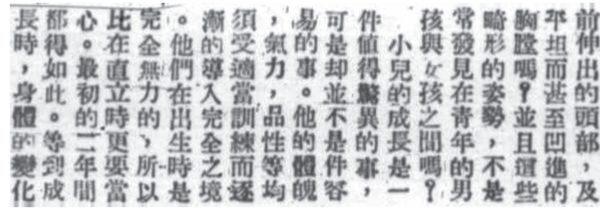 前伸出的頭部，及
平坦而甚至凹進的
胸膛嗎？並且這些
畸形的姿勢，不是
常發見在青年的男
孩與女孩之間嗎？
小兒的成長是一
件値得驚異的事，
可是却並不是件容
易的事。他的體魄
，氣力，品性等均
須受適當訓練而逐
漸的導入完全之境
。他們在出生時是
完全無力的，所以
比在直立時更要當
心。最初的二年間
都得如此。等到成
長時，身體的變化